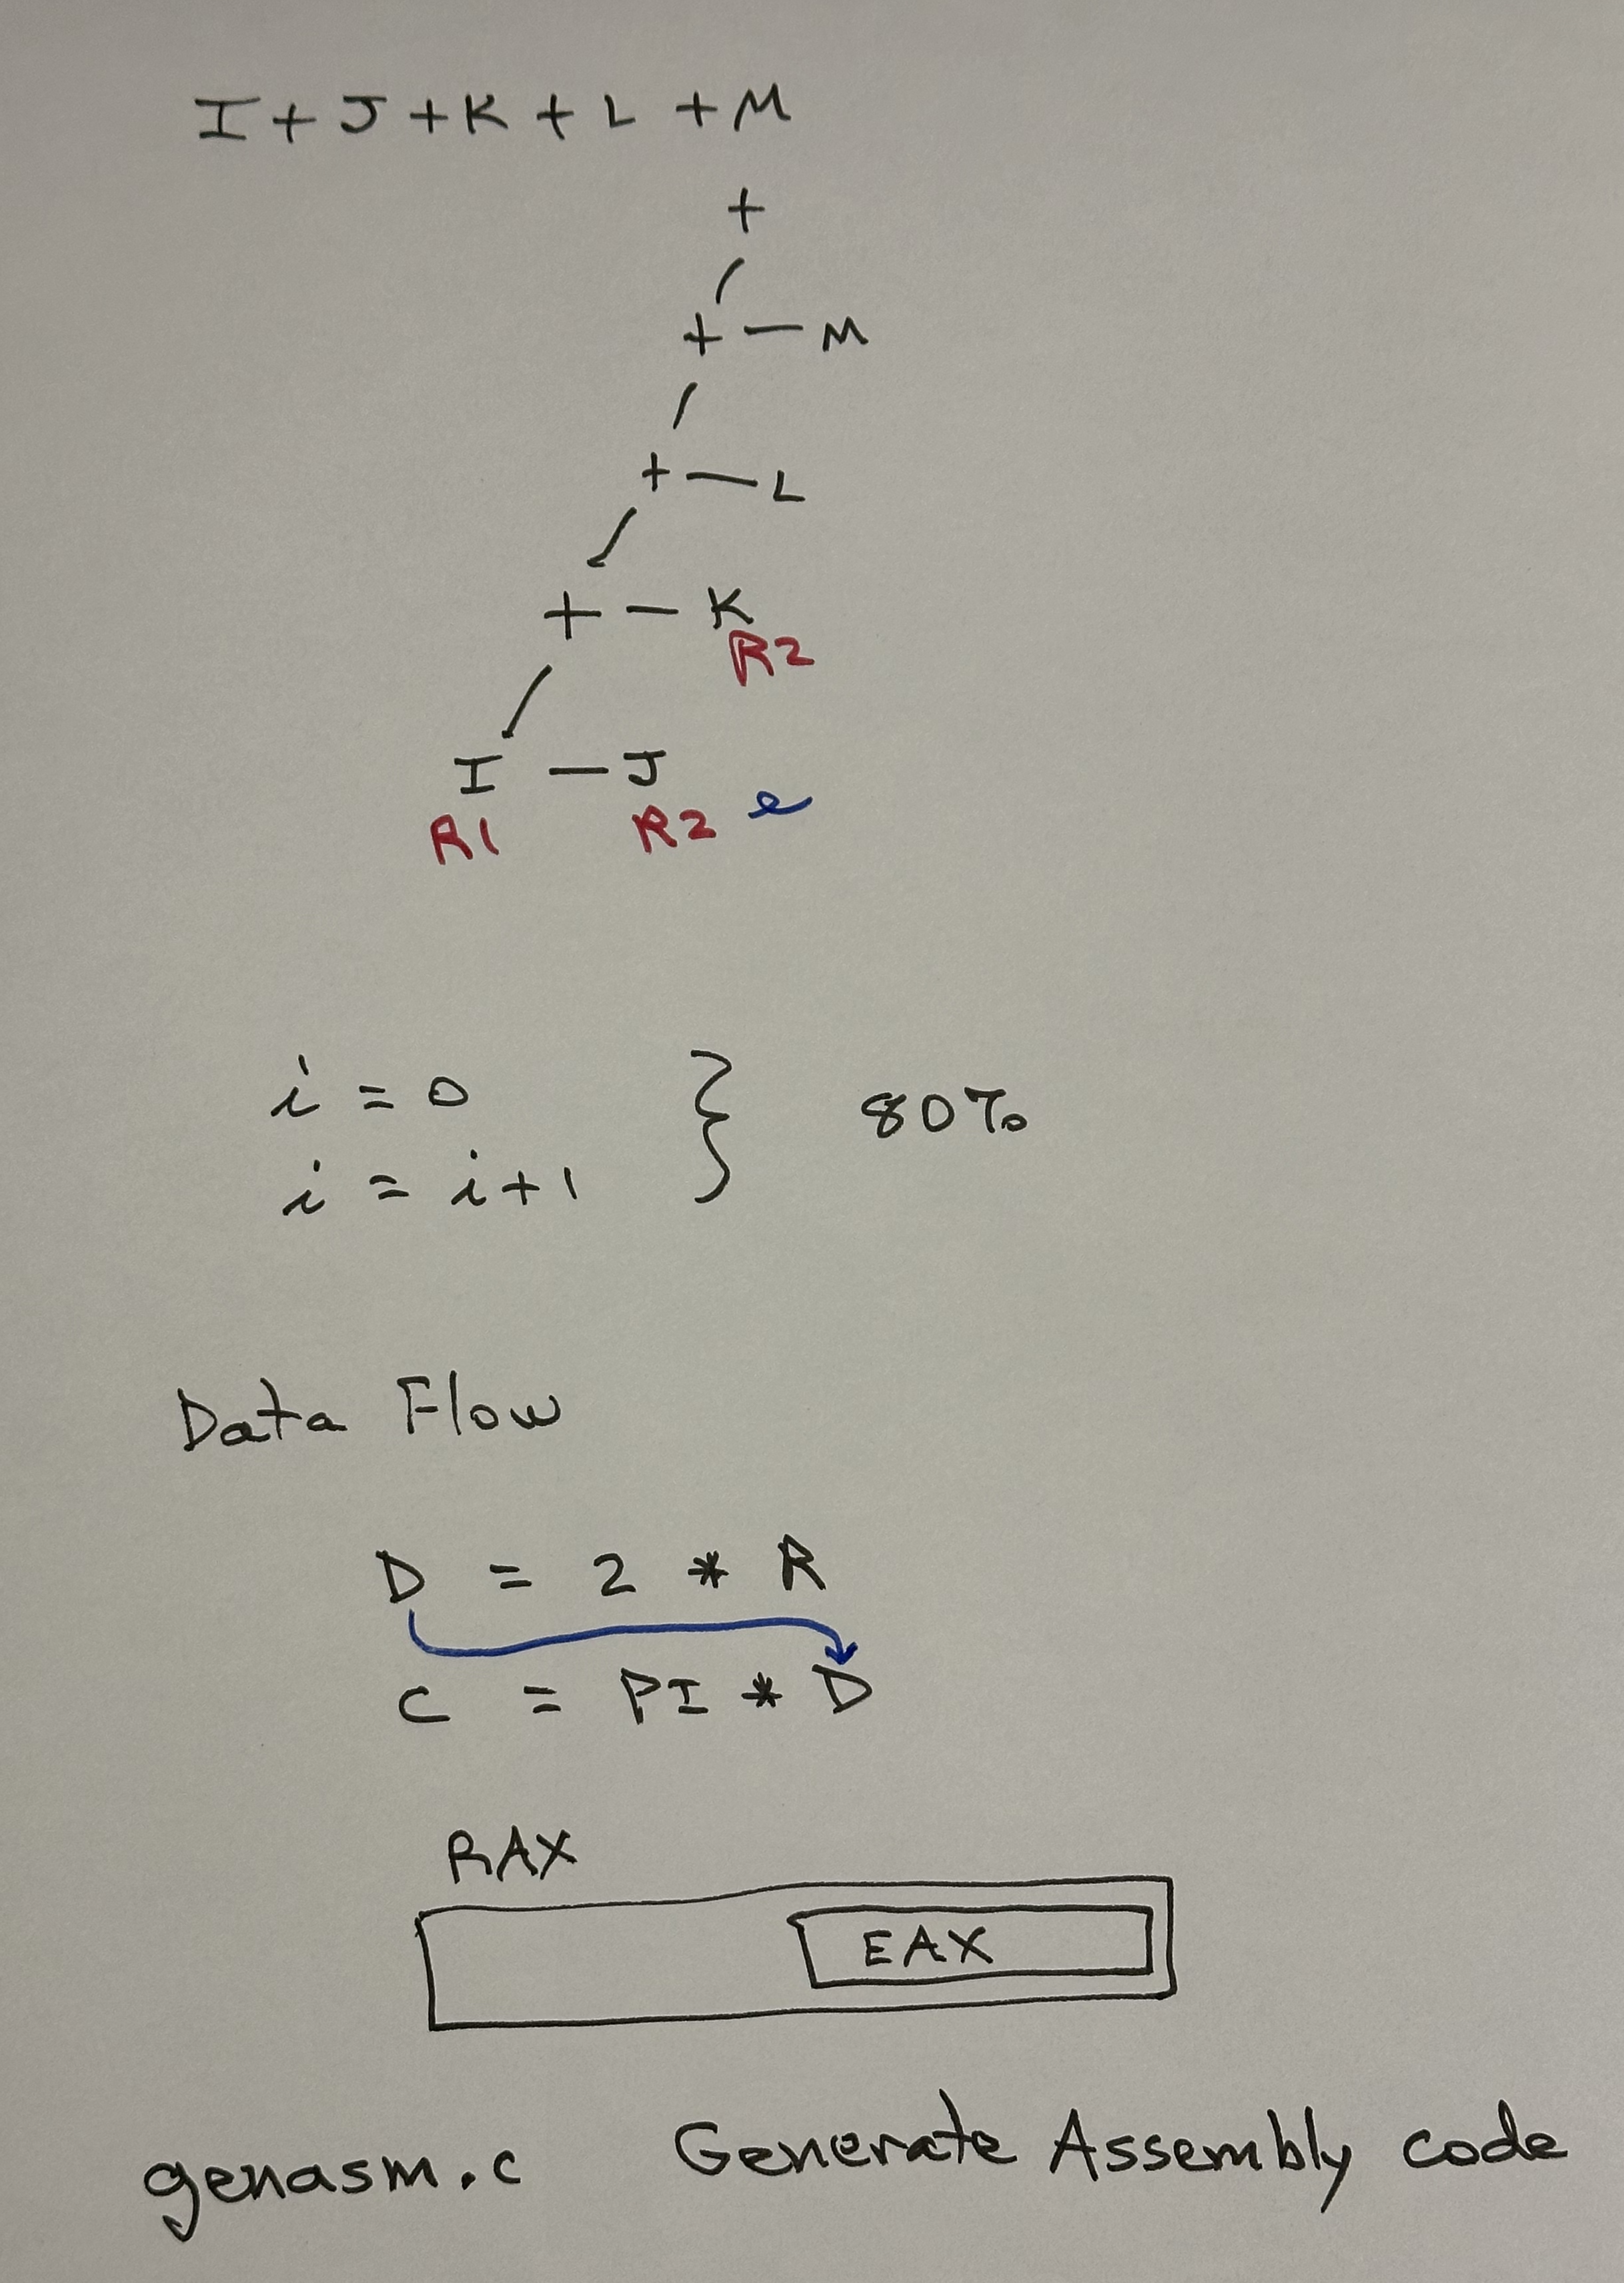 I + J + K + L + M
+
+ — M
+ — L
+ — K
R2
I — J
R1 R2 e
i = 0
i = i + 1
} 80%
Data Flow
D = 2 * R
C = PI * D
RAX
EAX
genasm.c Generate Assembly code